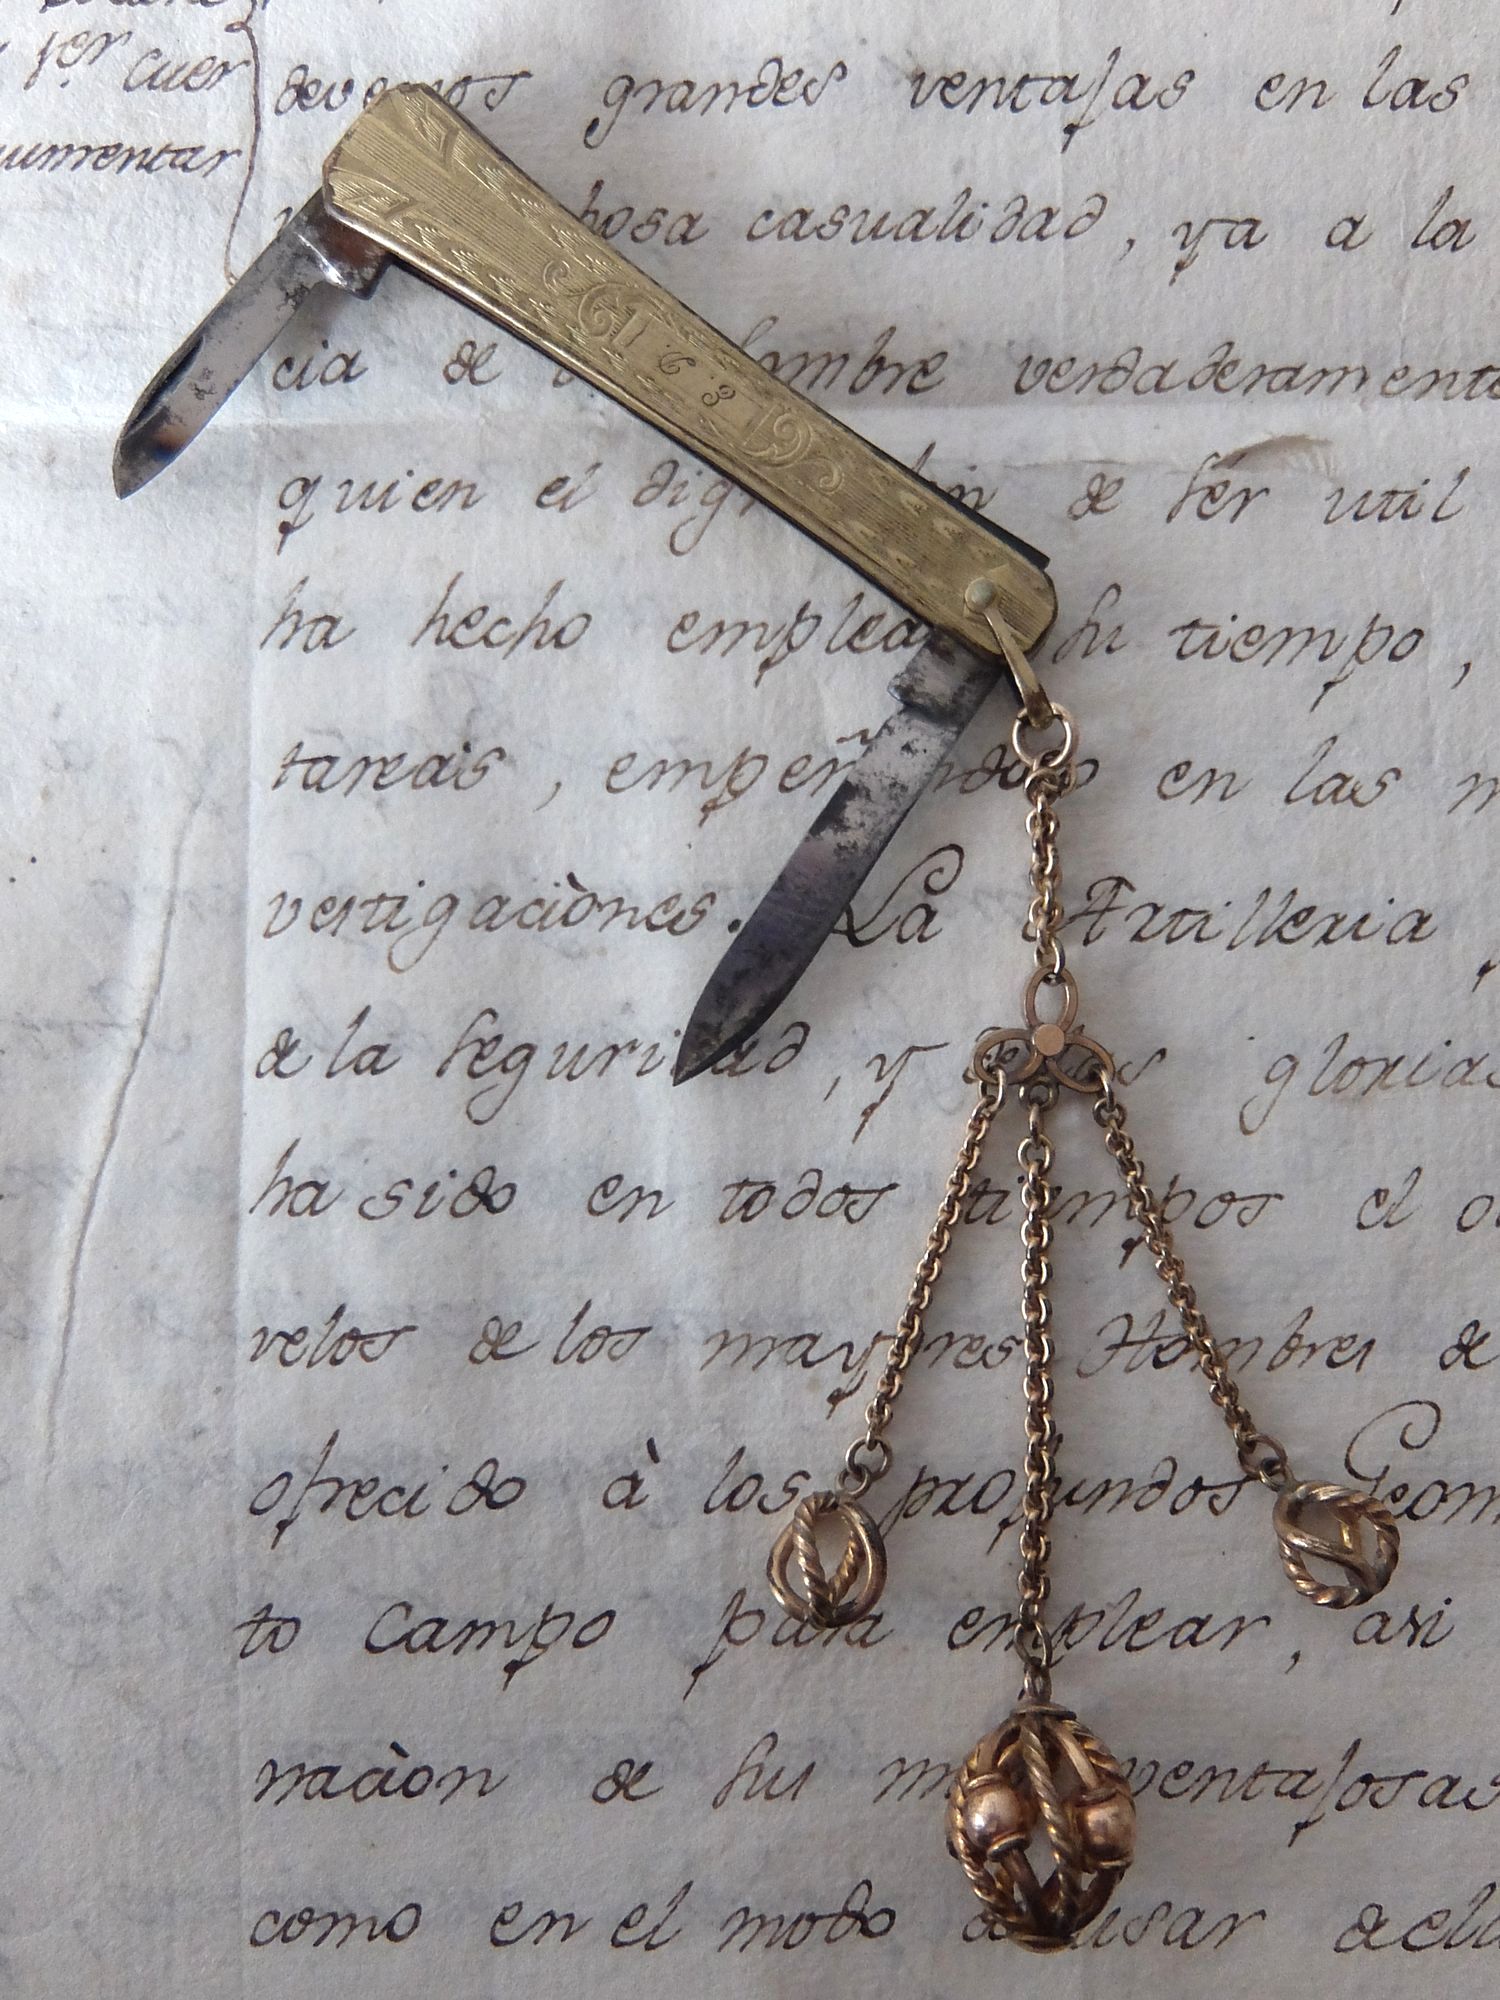 1er cuer
umentar
devemos grandes ventajas en las
posa casualidad, ya a la
cia de hombre verdaderamente
quien el dign de ser util
ha hecho emplear su tiempo,
tareas, empeñandose en las m
vestigaciònes. La Artilleria
de la seguridad, y de las glorias
ha sido en todos tiempos el
velos de los mayores Hombres de
ofrecido à los profundos Geom
to campo para emplear, asi
naciòn de sus mas ventajosas
como en el modo de usar de ella